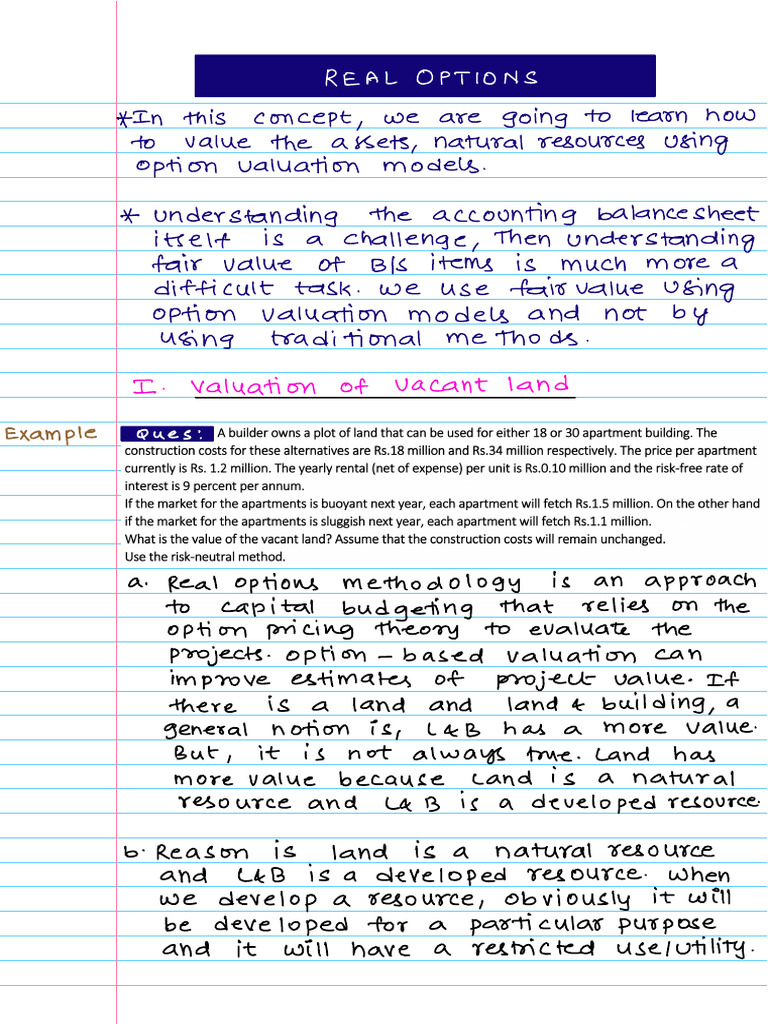 REAL OPTIONS
*In this concept, we are going to learn how
to value the assets, natural resources using
option valuation models.
* understanding the accounting balancesheet
itself is a challenge, Then understanding
fair value of B/s items is much more a
difficult task. we use fair value using
option valuation models and not by
using traditional methods.
I. valuation of vacant land
Example
Ques: A builder owns a plot of land that can be used for either 18 or 30 apartment building. The
construction costs for these alternatives are Rs.18 million and Rs.34 million respectively. The price per apartment
currently is Rs. 1.2 million. The yearly rental (net of expense) per unit is Rs.0.10 million and the risk-free rate of
interest is 9 percent per annum.
If the market for the apartments is buoyant next year, each apartment will fetch Rs.1.5 million. On the other hand
if the market for the apartments is sluggish next year, each apartment will fetch Rs.1.1 million.
What is the value of the vacant land? Assume that the construction costs will remain unchanged.
Use the risk-neutral method.
a. Real options methodology is an approach
to capital budgeting that relies on the
option pricing theory to evaluate the
projects. option - based valuation can
improve estimates of project value. If
there is a land and land & building, a
general notion is, L&B has a more value.
But, it is not always true. Land has
more value because Land is a natural
resource and L&B is a developed resource
b. Reason is land is a natural resource
and L&B is a developed resource. when
we develop a resource, obviously it will
be developed for a particular purpose
and it will have a restricted use/utility.